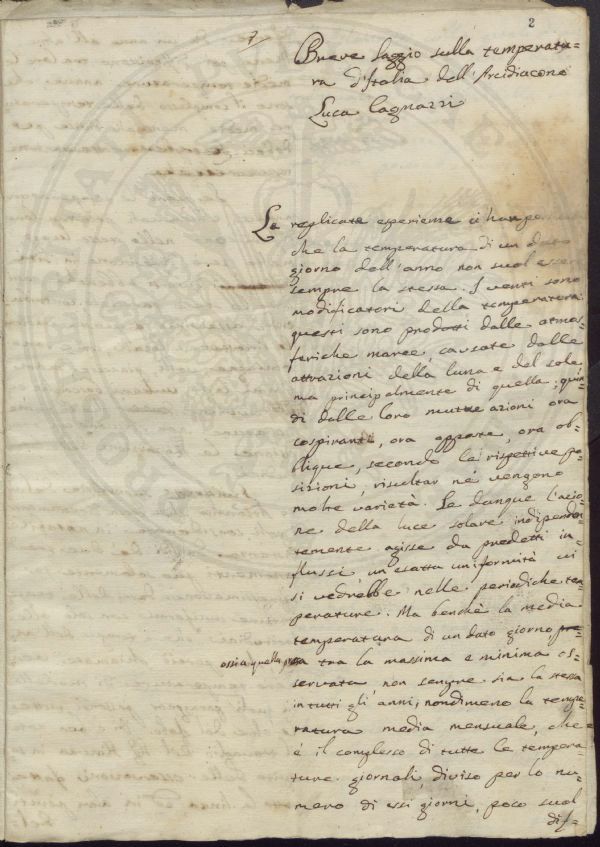 2
7
Breve Saggio sulla temperatu=
ra d'Italia dell'Arcidiacono
Luca Cagnazzi
Le replicate esperienze ci han
che la temperatura di un dato
giorno dell'anno non suol esser
sempre la stessa. I venti sono
modificatori della temperatura
questi sono prodotti dalle atmos=
feriche maree, causate dalle
attrazioni della luna e del sole
ma principalmente di quella; quin=
di dalle loro mutue azioni ora
cospiranti, ora opposte, ora ob=
blique, secondo le rispettive po=
sizioni, risultar ne vengono
molte varietà. Se dunque l'azio=
ne della luce solare indipenden=
temente agisse da predetti in=
flussi un'esatta uniformità vi
si vedrebbe nelle periodiche tem=
perature. Ma benchè la media
temperatura di un dato giorno, pre=
ossia quella presa tra la massima e minima os=
servata, non sempre sia la stessa
in tutti gli anni, nondimeno la tempe=
ratura media mensuale, che
è il complesso di tutte le tempera=
ture giornali, diviso per lo nu=
mero di essi giorni, poco suol
dif=